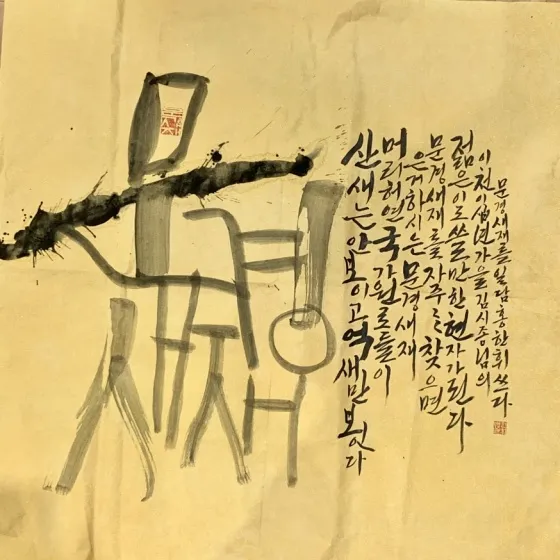 문경새재
산새는 안보이고 억새만 보인다
머리허연 국가원로들이
은거하시는 문경새재
문경새재를 자주 찾으면
젊은이로 쓸만한 현자가 된다
이천이십년 가을 김시종님의
문경새재를 일담 홍한휘 쓰다